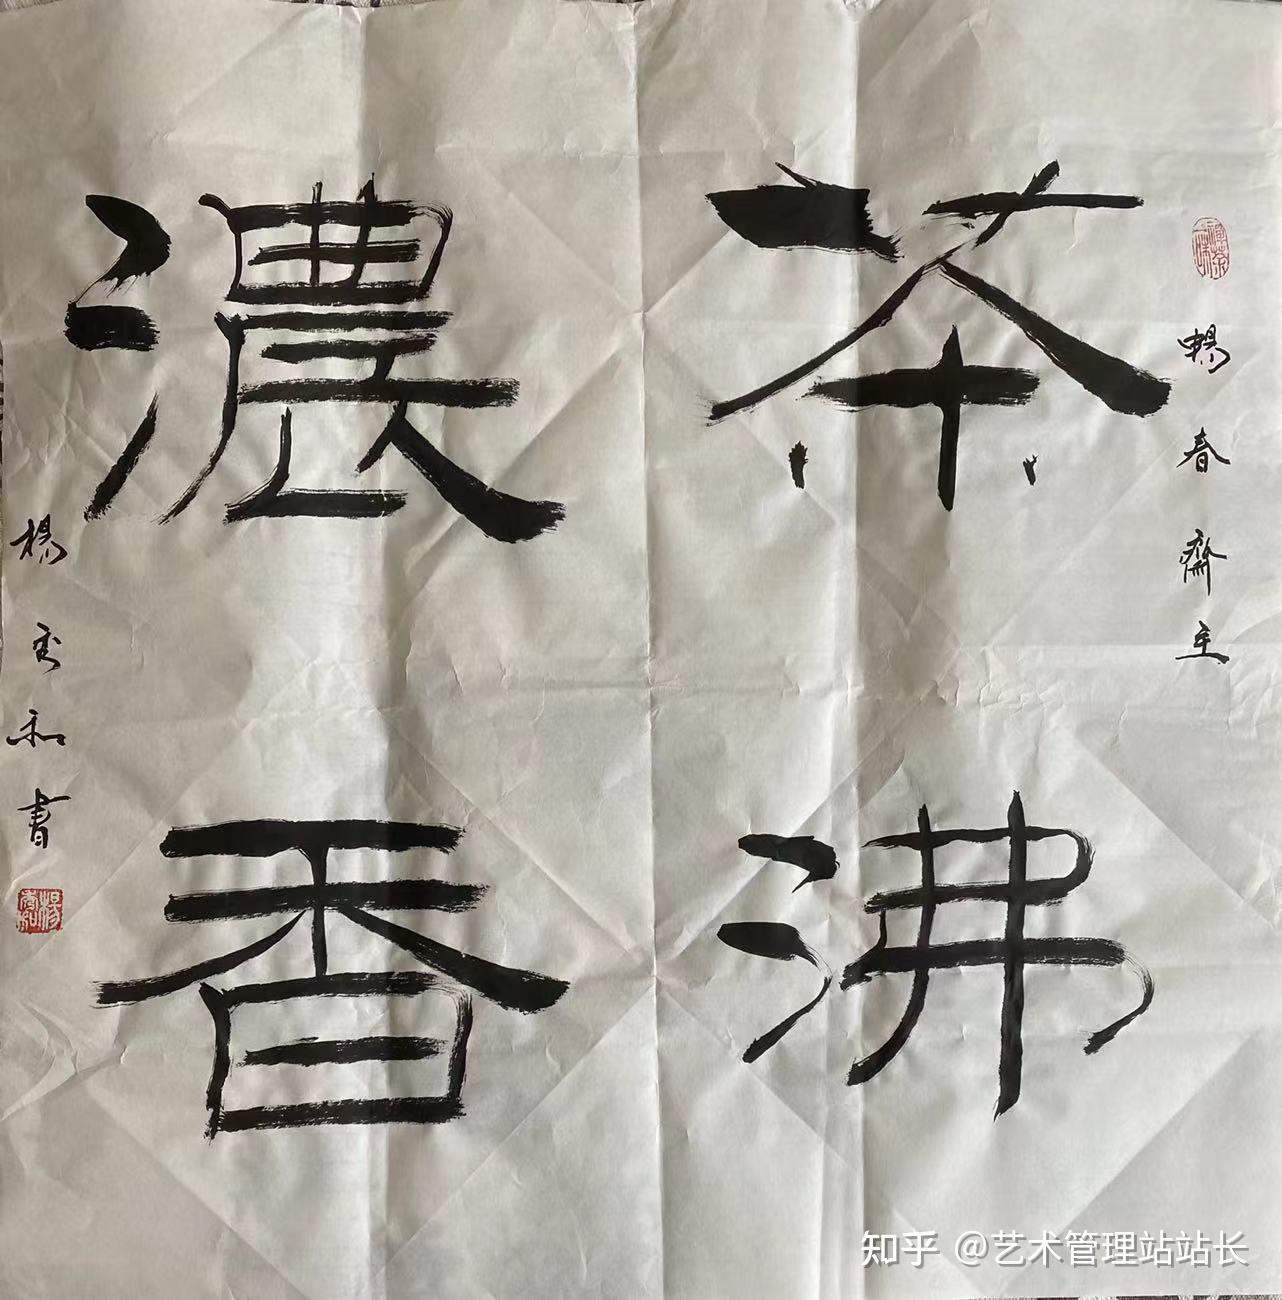 暢春齋主
茶沸
濃香
楊秀和書
楊秀和
知乎 @艺术管理站站长